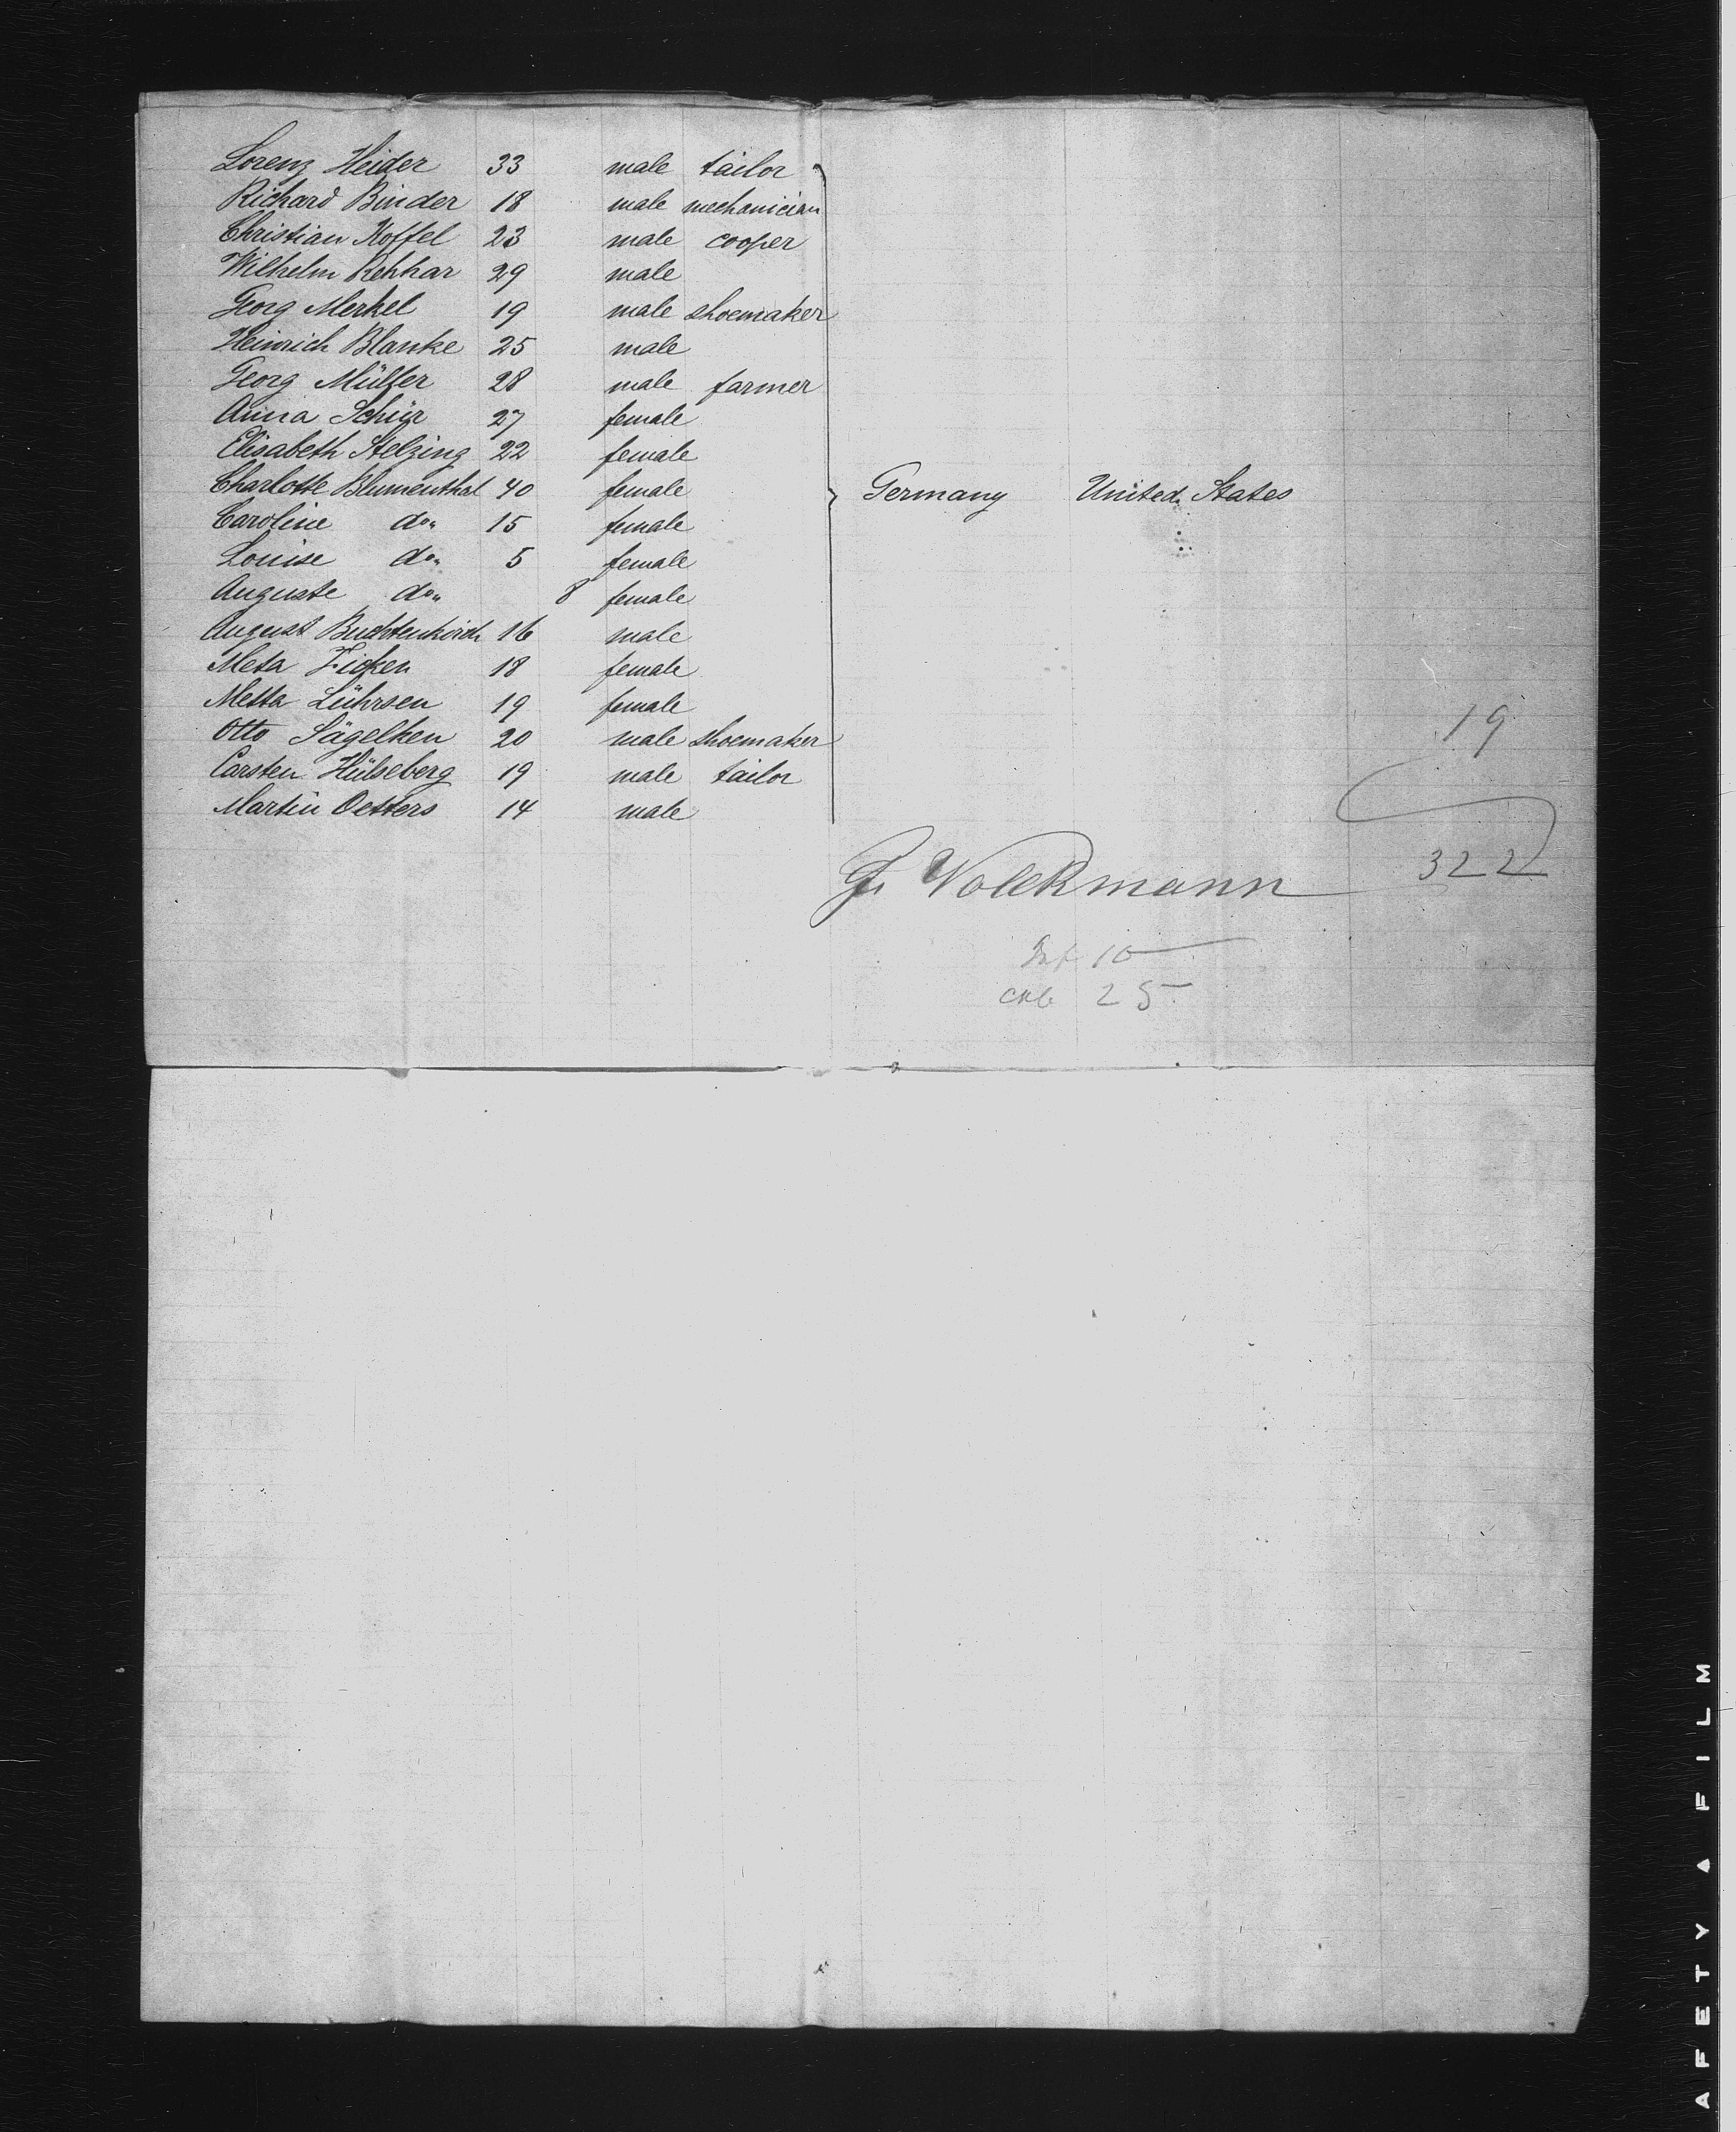 Lorenz Heider 33 male tailor
Richard Binder 18 male mechanician
Christian Koffel 23 male cooper
Wilhelm 29 male
Georg Merkel 19 male shoemaker
Heinrich Blanke 25 male
Georg Müller 28 male farmer
Anna 27 female
Elisabeth Stelzing 22 female
Charlotte Blumenthal 40 female Germany United States
Caroline do„ 15 female
Louise do„ 5 female
Auguste do„ 8 female
August Buchtenkirch 16 male
Meta Ficken 18 female
Metta Lührsen 19 female
Otto Sägelken 20 male shoemaker
19
Carsten Hülseberg 19 male tailor
Martin Oetters 14 male
322
Volckmann
10
25
AFETY A FILM